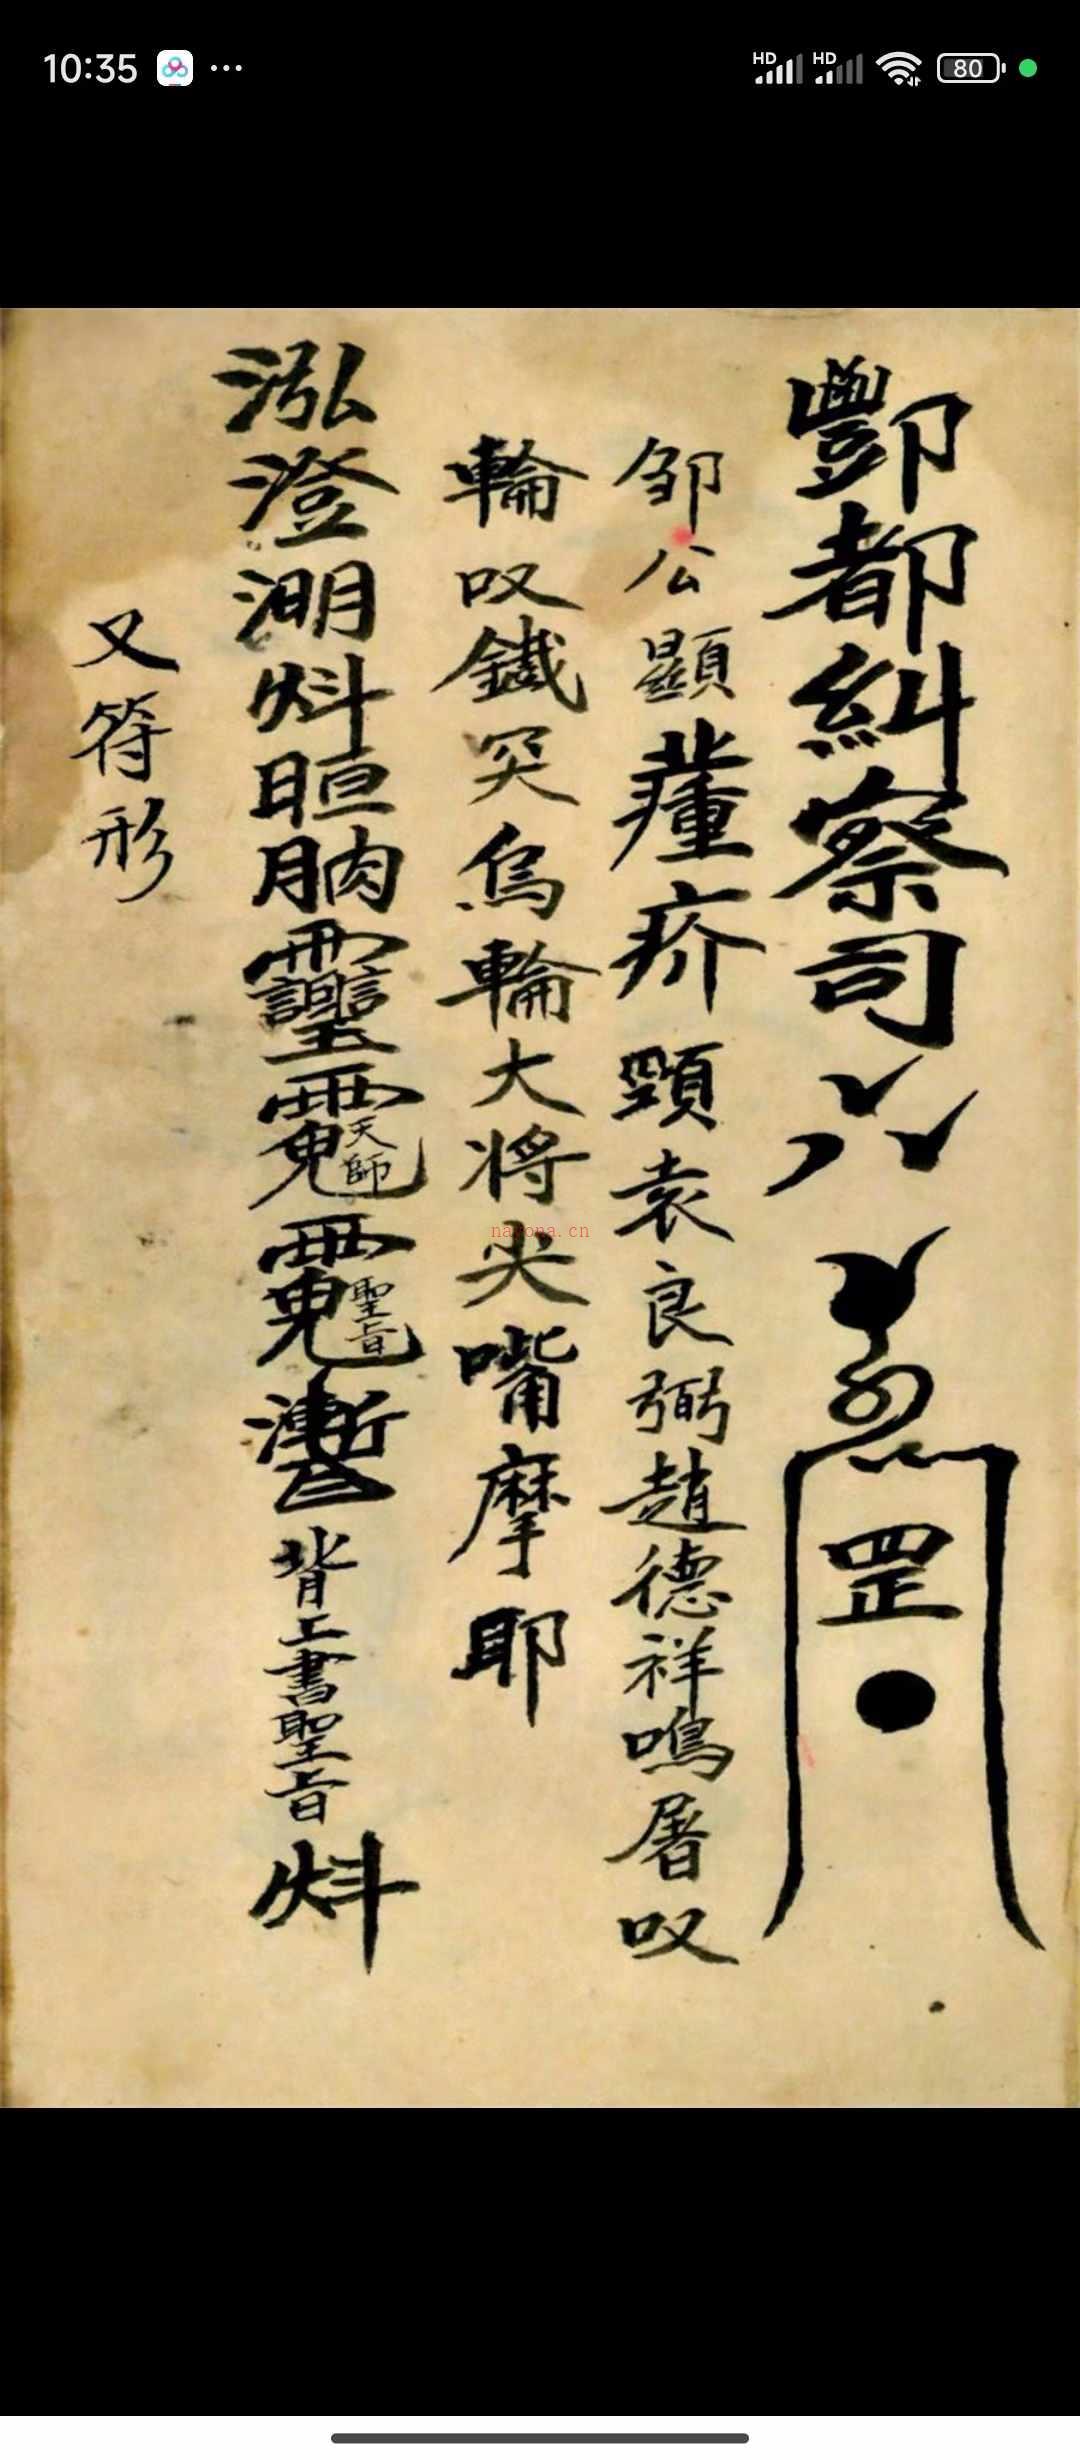 10:35
HD HD 80
酆都糾察司
罡
邹公顯 疥 袁良弼趙德祥鳴屠叹
輪叹鐵突烏輪大将尖嘴摩耶
泓澄 炓晅朒 天師 聖旨 背上書聖旨 炓
又符形
nayona.cn